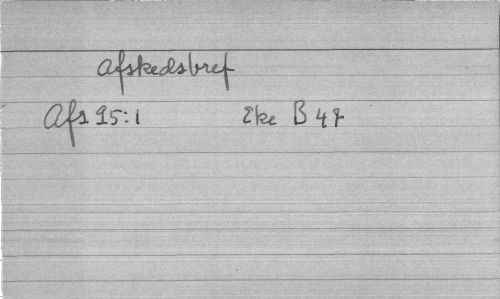 Afskedsbref
Afs 25:1 Eke B 47